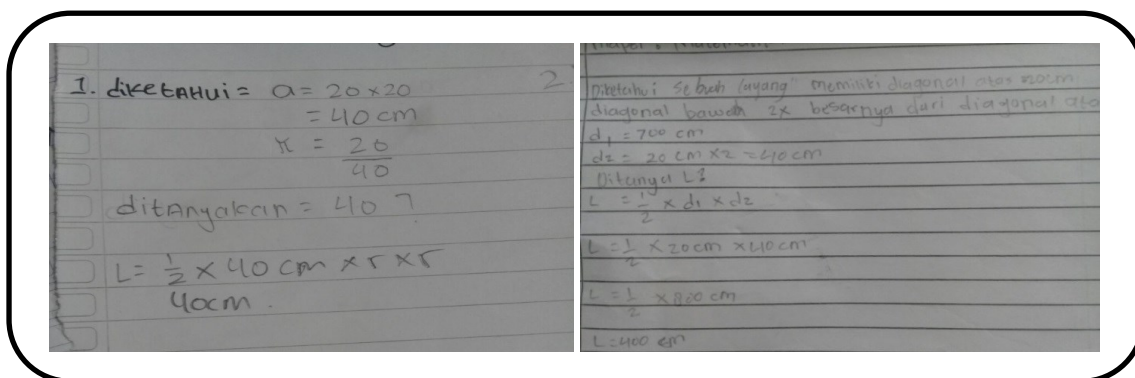 1. diketAHui = a = 20 × 20
= 40 cm
r = 20
40
ditAnyakan = 40 ?
L = 1/2 × 40 cm × r × r
40cm.
2.
Diketahui sebuah layang" memiliki diagonal atas 20cm
diagonal bawah 2x besarnya dari diagonal ata
d1 = 700 cm
d2 = 20 cm × 2 = 40cm
Ditanya L?
L = 1/2 × d1 × d2
L = 1/2 × 20cm × 40cm
L = 1/2 × 800 cm
L = 400 cm